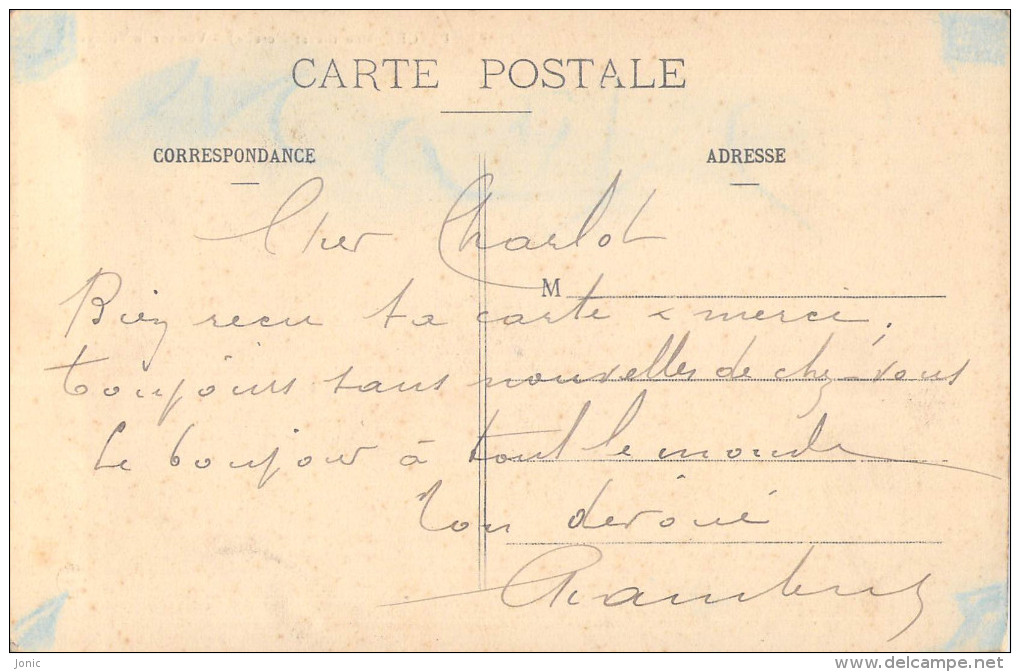 CARTE POSTALE
CORRESPONDANCE
ADRESSE
Cher Charlot
M
Bien recu ta carte & merci.
Toujours sans nouvelles de chez-vous
Le bonjour à tout le monde
Ton dévoué
Jonic
http://www.delcampe.net